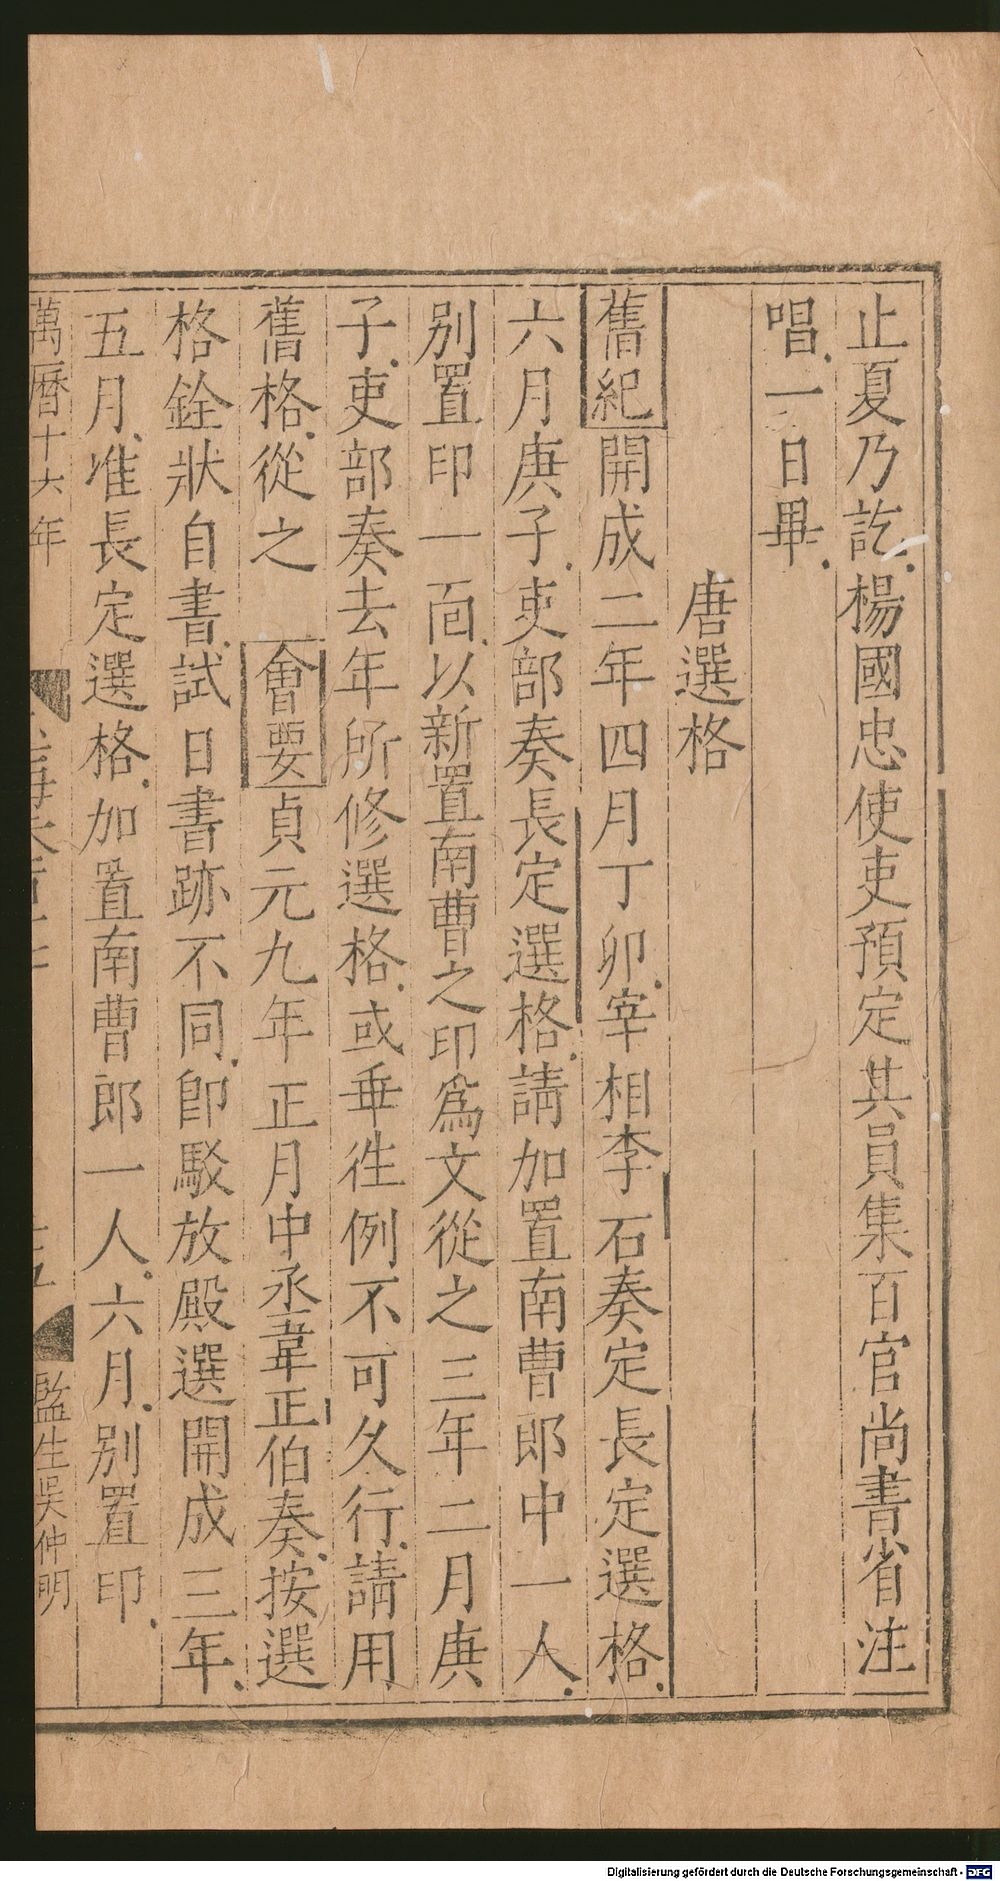 止夏乃訖楊國忠使吏預定其員集百官尚書省注
唱一日畢
唐選格
舊紀開成二年四月丁卯宰相李石奏定長定選格
六月庚子吏部奏長定選格請加置南曹郎中一人
別置印一面以新置南曹之印爲文從之三年二月庚
子吏部奏去年所修選格或乖徃例不可久行請用
舊格從之 會要貞元九年正月中丞韋正伯奏按選
格銓狀自書試日書跡不同卽駁放殿選開成三年
五月准長定選格加置南曹郎一人六月別置印
萬曆十六年
監生吳仲明
Digitalisierung gefördert durch die Deutsche Forschungsgemeinschaft - DFG